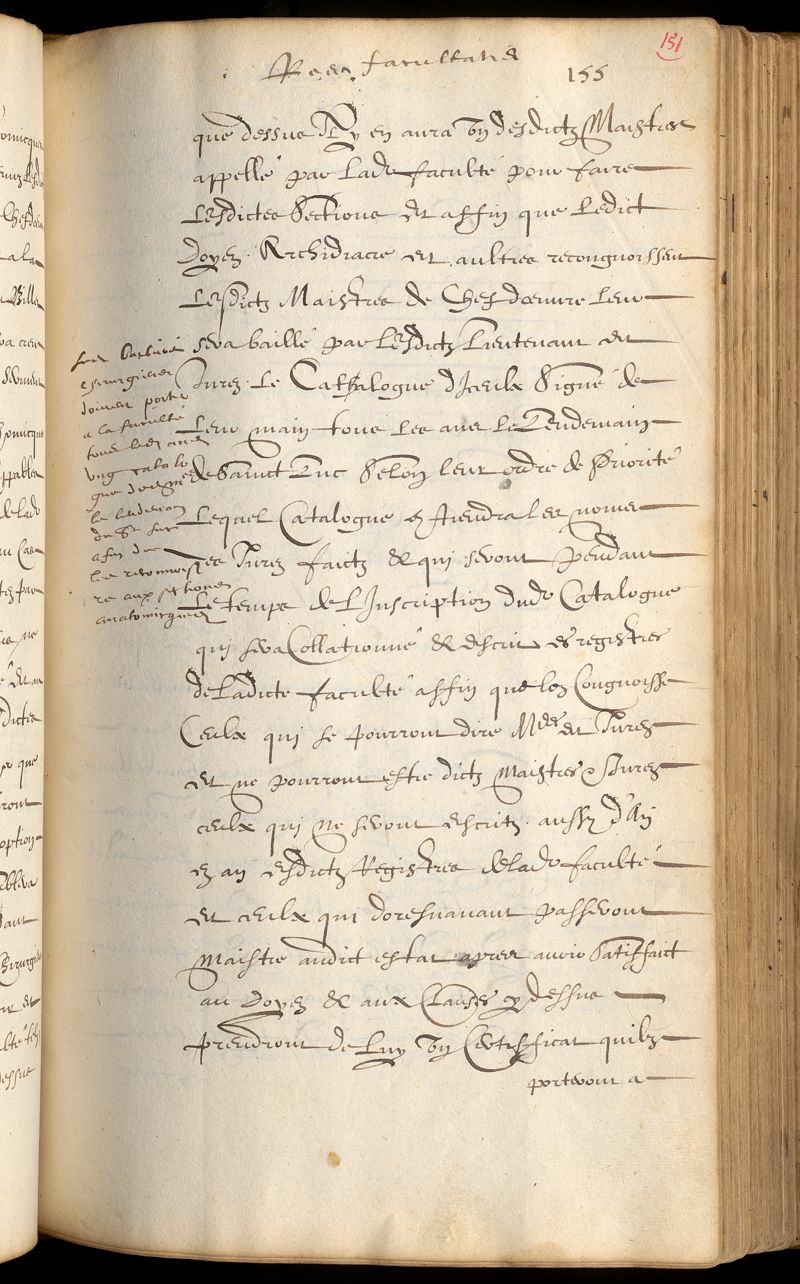 151
facultatis
155
que dessus Et y en aura Un desdictz Maistres
appellé par lade faculté pour faire
Lesdictes Sections Et affin que Ledict
Doyen Archidiacre et aultres recongnoissent
Lesdictz Maistres de Chefdoeuvre leur
sera baillé par Lesdictz Lieutenant et
Jurez Le Cathalogue d'Iceulx Signé de
Leur main tous les ans Le Lendemain
de Sainct Luc Selon leur ordre de Priorité
Lequel Catalogue contiendra les noms
des Jurez faictz & qui seront pendant
Le temps de L'Inscription dudt Catalogue
qui sera Collationné & escrit es registres
de Ladicte faculté affin que lon Congnoisse
Ceulx qui se pourront dire Mes et Jurez
et ne pourront estre dictz Maistres & Jurez
ceulx qui ne seront escritz aussy d'An
en an esdictz Registres delade faculté
et ceulx qui doresnavant passeront
Maistre audict estat apres avoir Satisfaict
au Doyen & aux Clauses cy dessus
prendront de Luy Un Certifficat quilz
porteront a
Les Barbiers
chirurgiens
doivent porter
a la faculté
tous les ans
ung catalo
gue
le lendemain
de St Luc
afin de
les reconnois
re aux sections
anatomicques